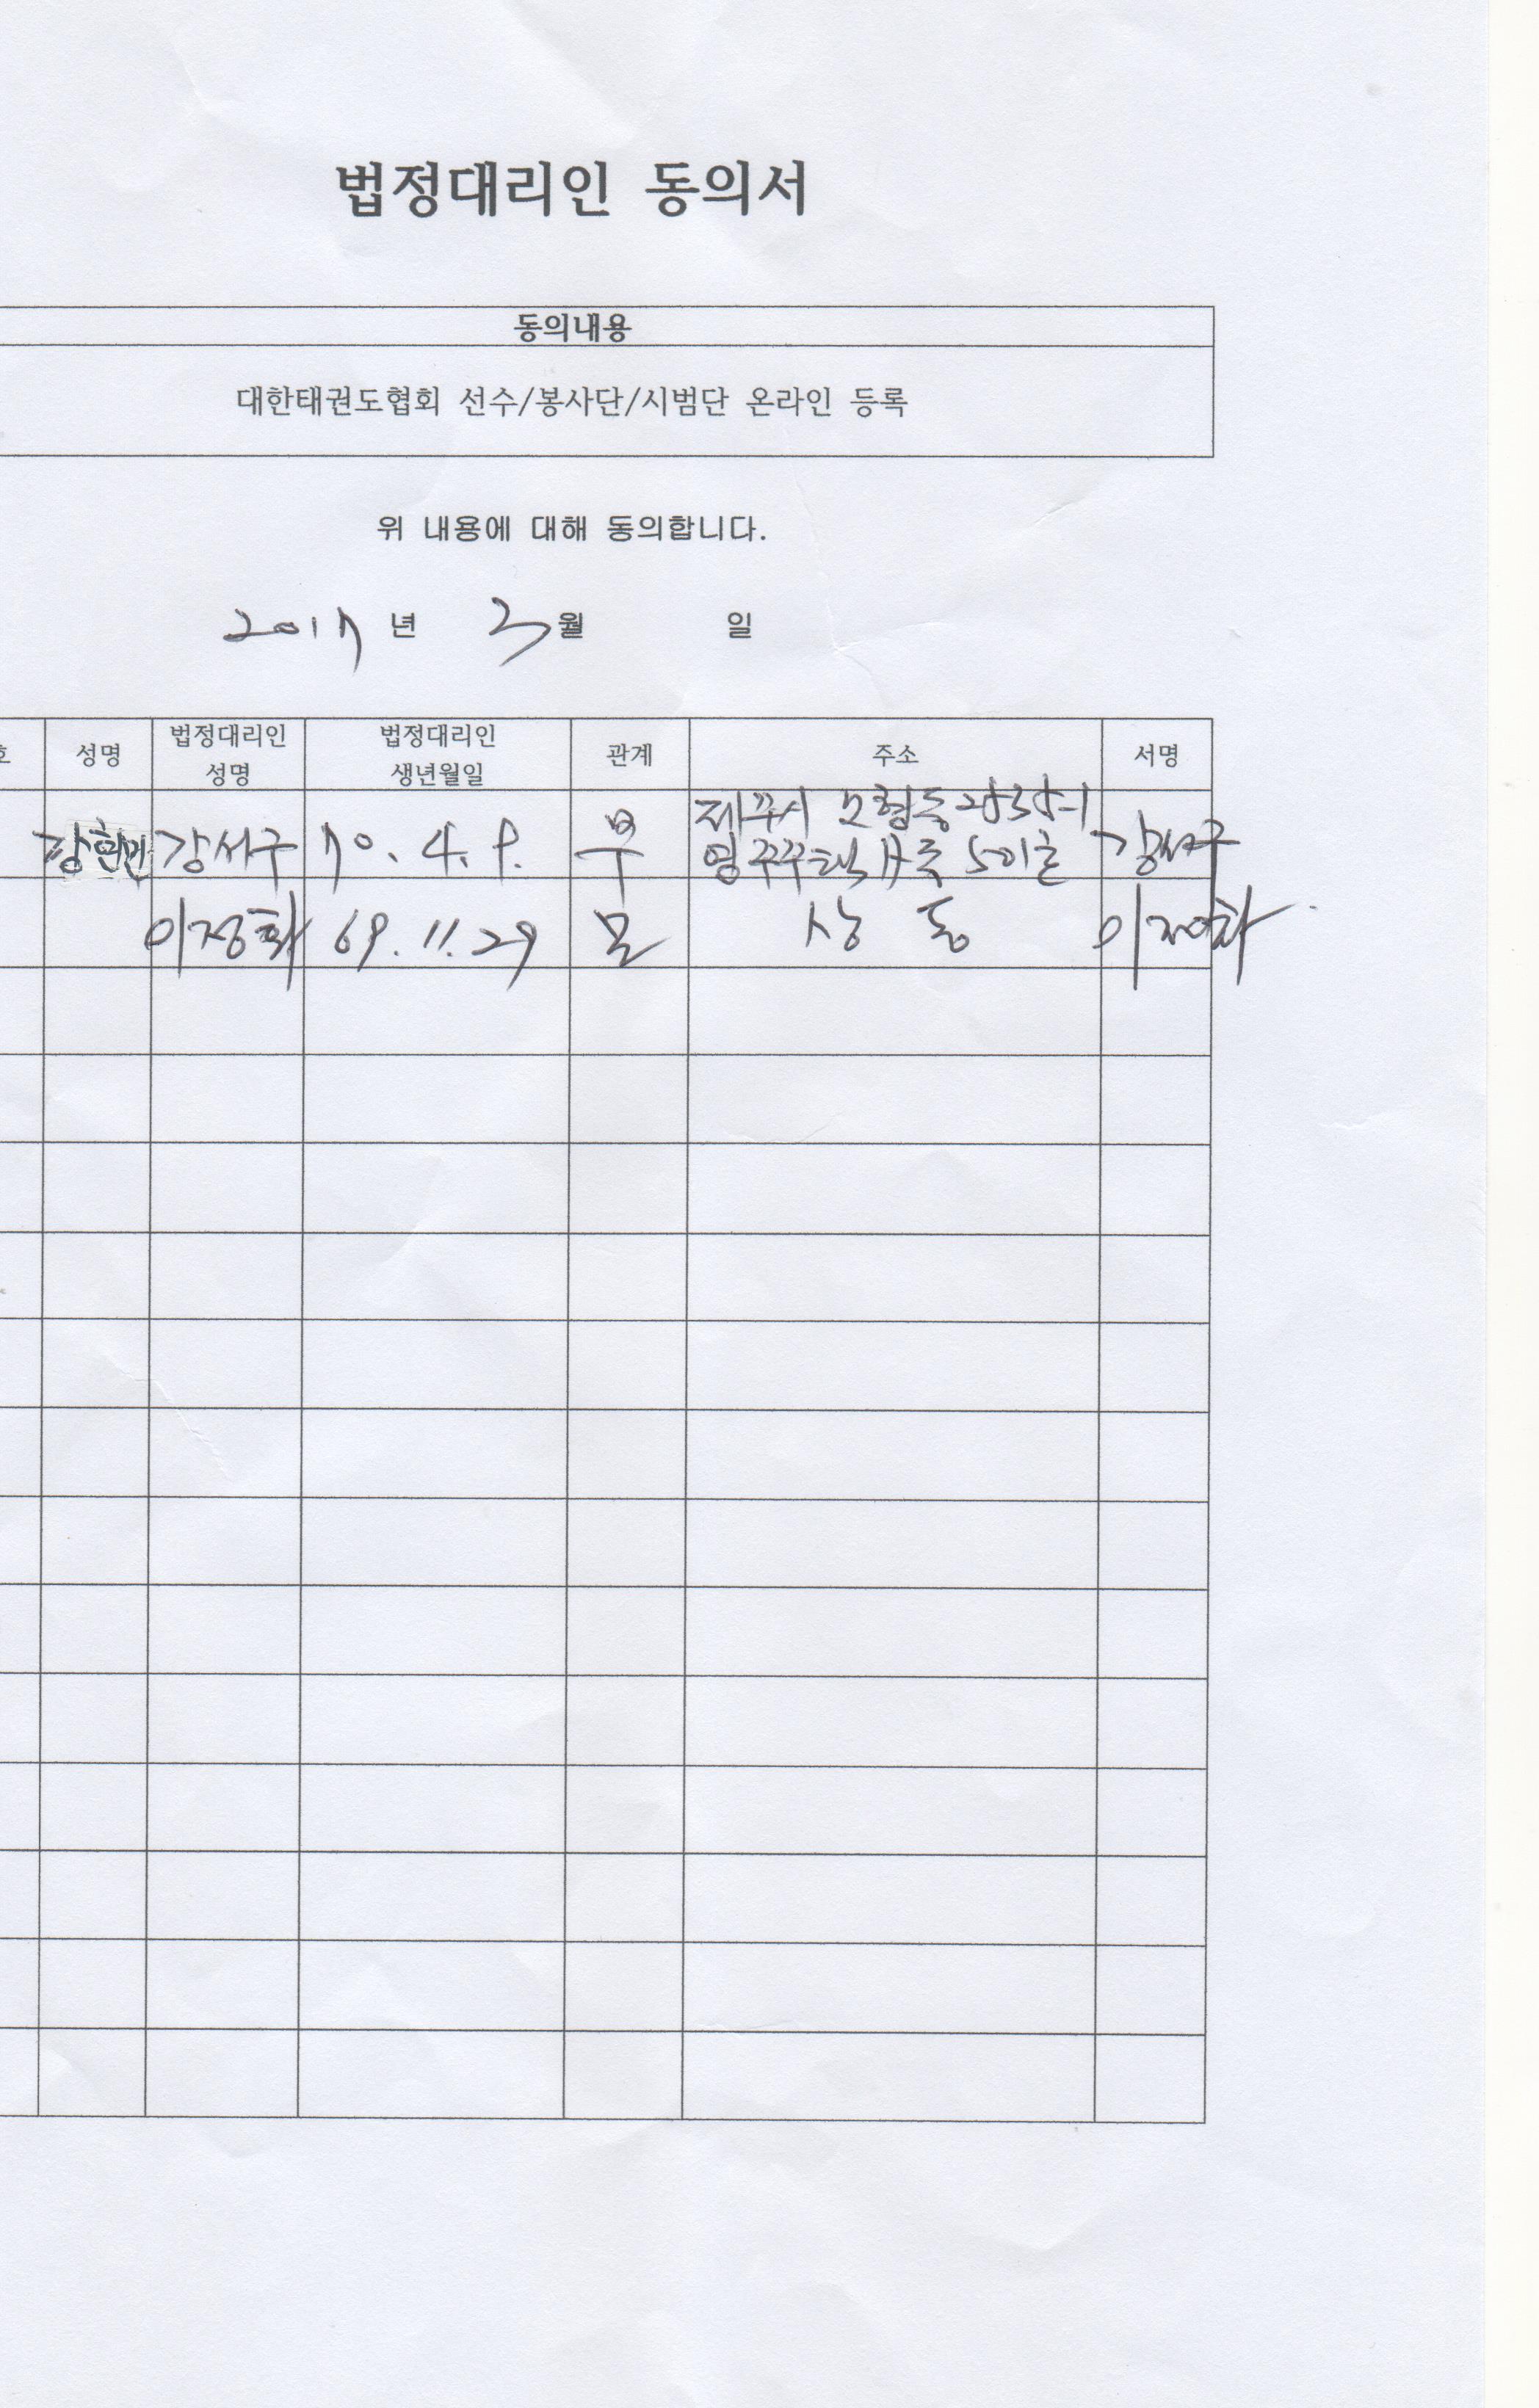 법정대리인 동의서
동의내용
대한태권도협회 선수/봉사단/시범단 온라인 등록
위 내용에 대해 동의합니다.
2017 년 3월 일
호 성명 법정대리인 성명 법정대리인 생년월일 관계 주소 서명
강현민 강서구 70. 4. 9. 부 제주시 노형동 2535-1
영주주택 A동 501호 강서구
이정화 69. 11. 29 모 상동 이정화